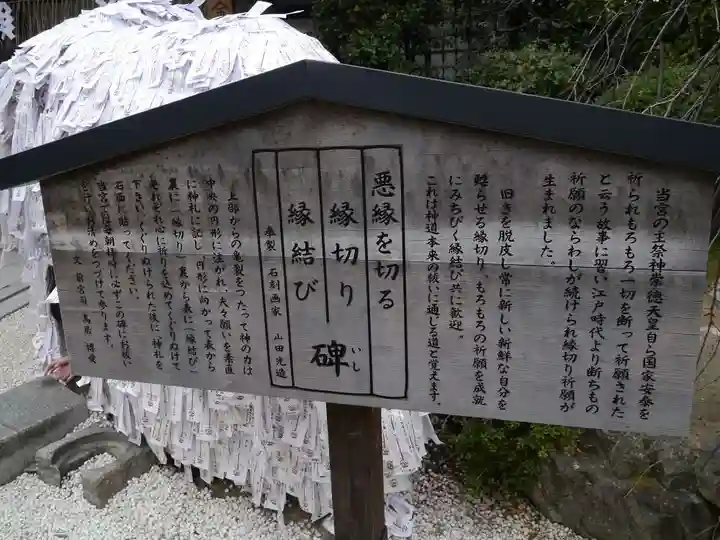 当宮の主祭神崇徳天皇自ら国家安泰を
祈られもろもろ一切を断って祈願された
と云う故事に習い江戸時代より断ちもの
祈願のならわしが続けられ縁切り祈願が
生まれました。
旧きを脱皮し常に新しい新鮮な自分を
甦らせる縁切り、もろもろの祈願を成就
にみちびく縁結び共に歓迎。
これは神道本来の祓いに通じる道と覚えます。
悪縁を切る
縁切り
縁結び
碑
いし
奉製 石刻画家 山田光造
上部からの亀裂をつたって神の力は
中央の円形に注がれ、夫々願いを素直
に神札に記し、円形に向かって表から
裏に「縁切り」裏から表に「縁結び」
夫れぞれ心に祈りを込めてくぐりぬけて
下さい。くぐりぬけられた後に神札を
石面に貼ってください。
当宮では毎朝拝時、必ずこの碑にお祓い